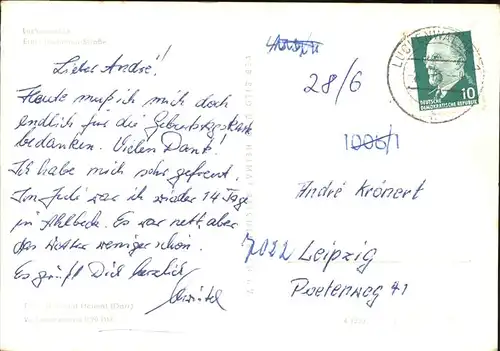 Lieber André!
Heute muß ich mich doch
endlich für die Geburtstagskarte
bedanken. Vielen Dank!
Ich habe mich sehr gefreut.
Im Juli war ich wieder 14 Tage
in Ahlbeck. Es war nett, aber
das Wetter weniger schön.
Es grüßt Dich herzlich
28/6
1006/1
LUCKENWALDE 1
10
DEUTSCHE
DEMOKRATISCHE REPUBLIK
André Krönert
7022 Leipzig
Poetenweg 41